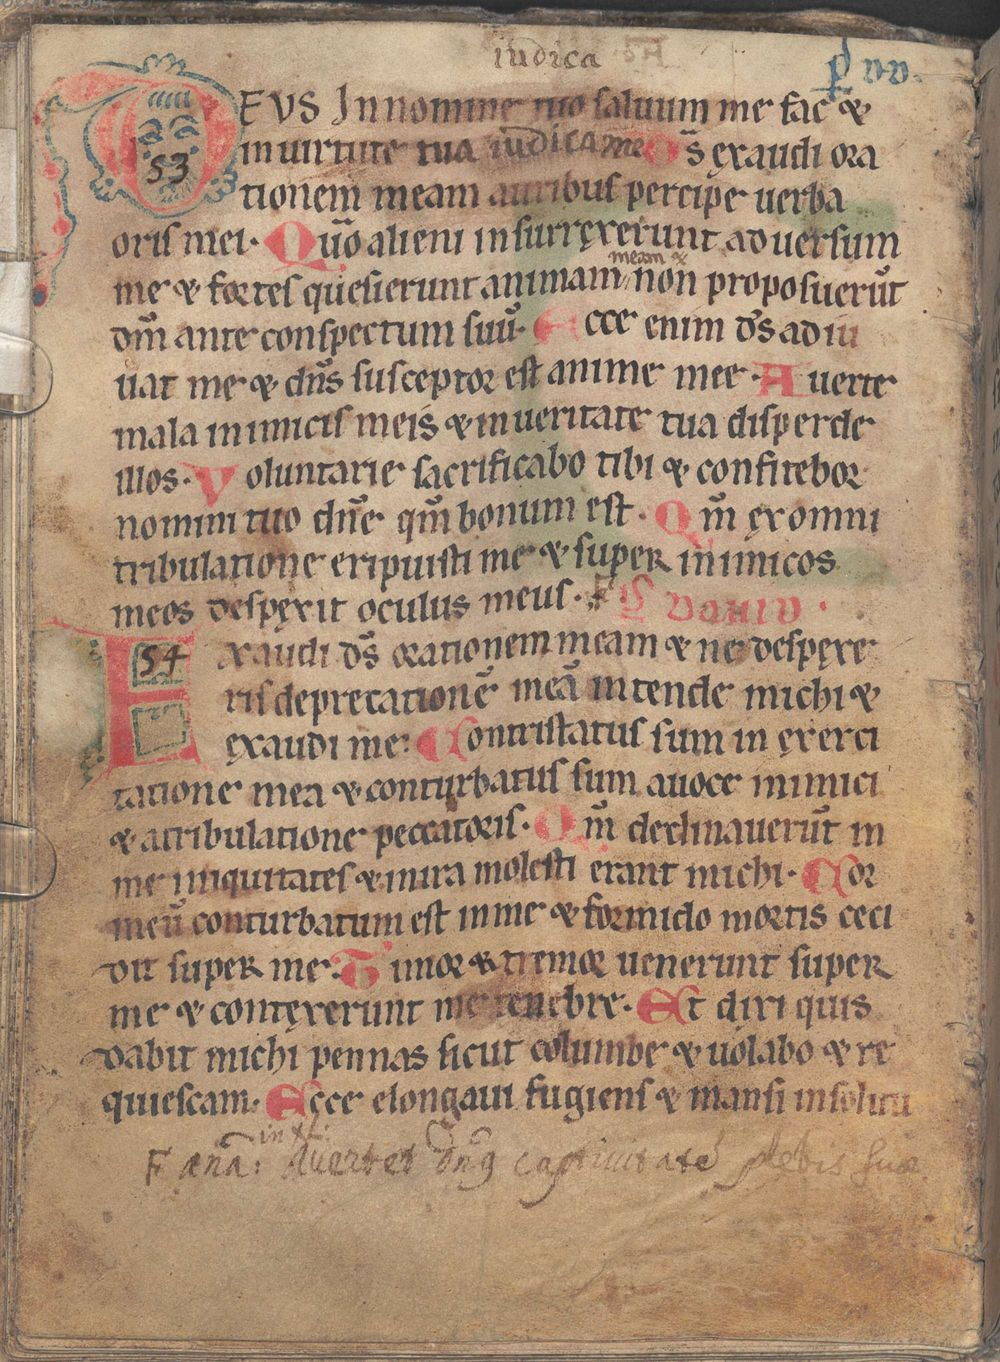 iudica
DEVS In nomine tuo saluum me fac &
53 in uirtute tua iudica me D̄s exaudi ora
tionem meam auribus percipe uerba
oris mei. Qūo alieni insurrexerunt aduersum
meam &
me & fortes quesierunt animam non proposuerūt
dm̄ ante conspectum suū. Ecce enim ds̄ adiu
uat me & dn̄s susceptor est anime mee. Auerte
mala inimicis meis & in ueritate tua disperde
illos. Voluntarie sacrificabo tibi & confitebor
nomini tuo dn̄e qm̄ bonum est. Qm̄ ex omni
tribulatione eripuisti me & super inimicos
meos despexit oculus meus. PS DAUID.
54 Exaudi ds̄ orationem meam & ne despexe
ris deprecationē meā intende michi &
exaudi me: Contristatus sum in exerci
tatione mea & conturbatus sum a uoce inimici
& a tribulatione peccatoris. Qm̄ declinauerūt in
me iniquitates & in ira molesti erant michi. Cor
meū conturbatum est in me & formido mortis ceci
dit super me. Timor & tremor uenerunt super
me & contexerunt me tenebre. Et dixi quis
dabit michi pennas sicut columbe & uolabo & re
quiescam. Ecce elongaui fugiens & mansi in solitu
F anā: Auertet dn̄s captiuitatē plebis suæ